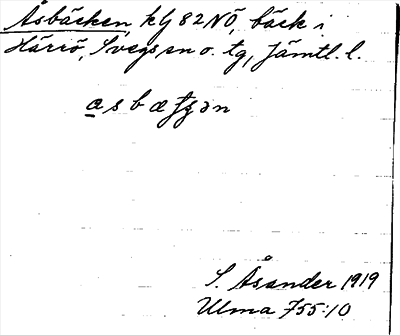 Åsbäcken, kG 82 NÖ, bäck i
Härrö, Svegs sn o. tg, Jämtl. l.
S. Åsander 1919
Ulma 755:10